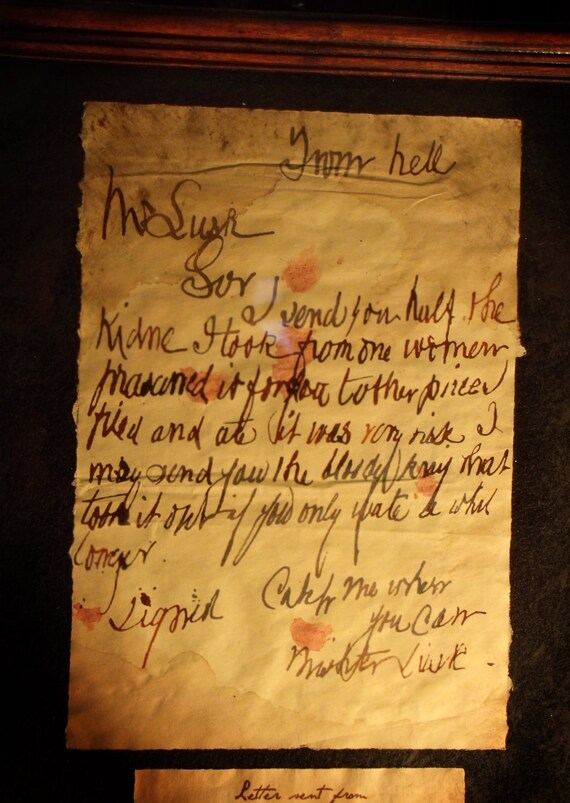 From hell
Mr Lusk
Sor
I send you half the
Kidne I took from one women
prasarved it for you tother piece I
fried and ate it was very nise I
may send you the bloody knif that
took it out if you only wate a whil
longer.
Signed Catch me when
you Can
Mishter Lusk.
Letter sent from